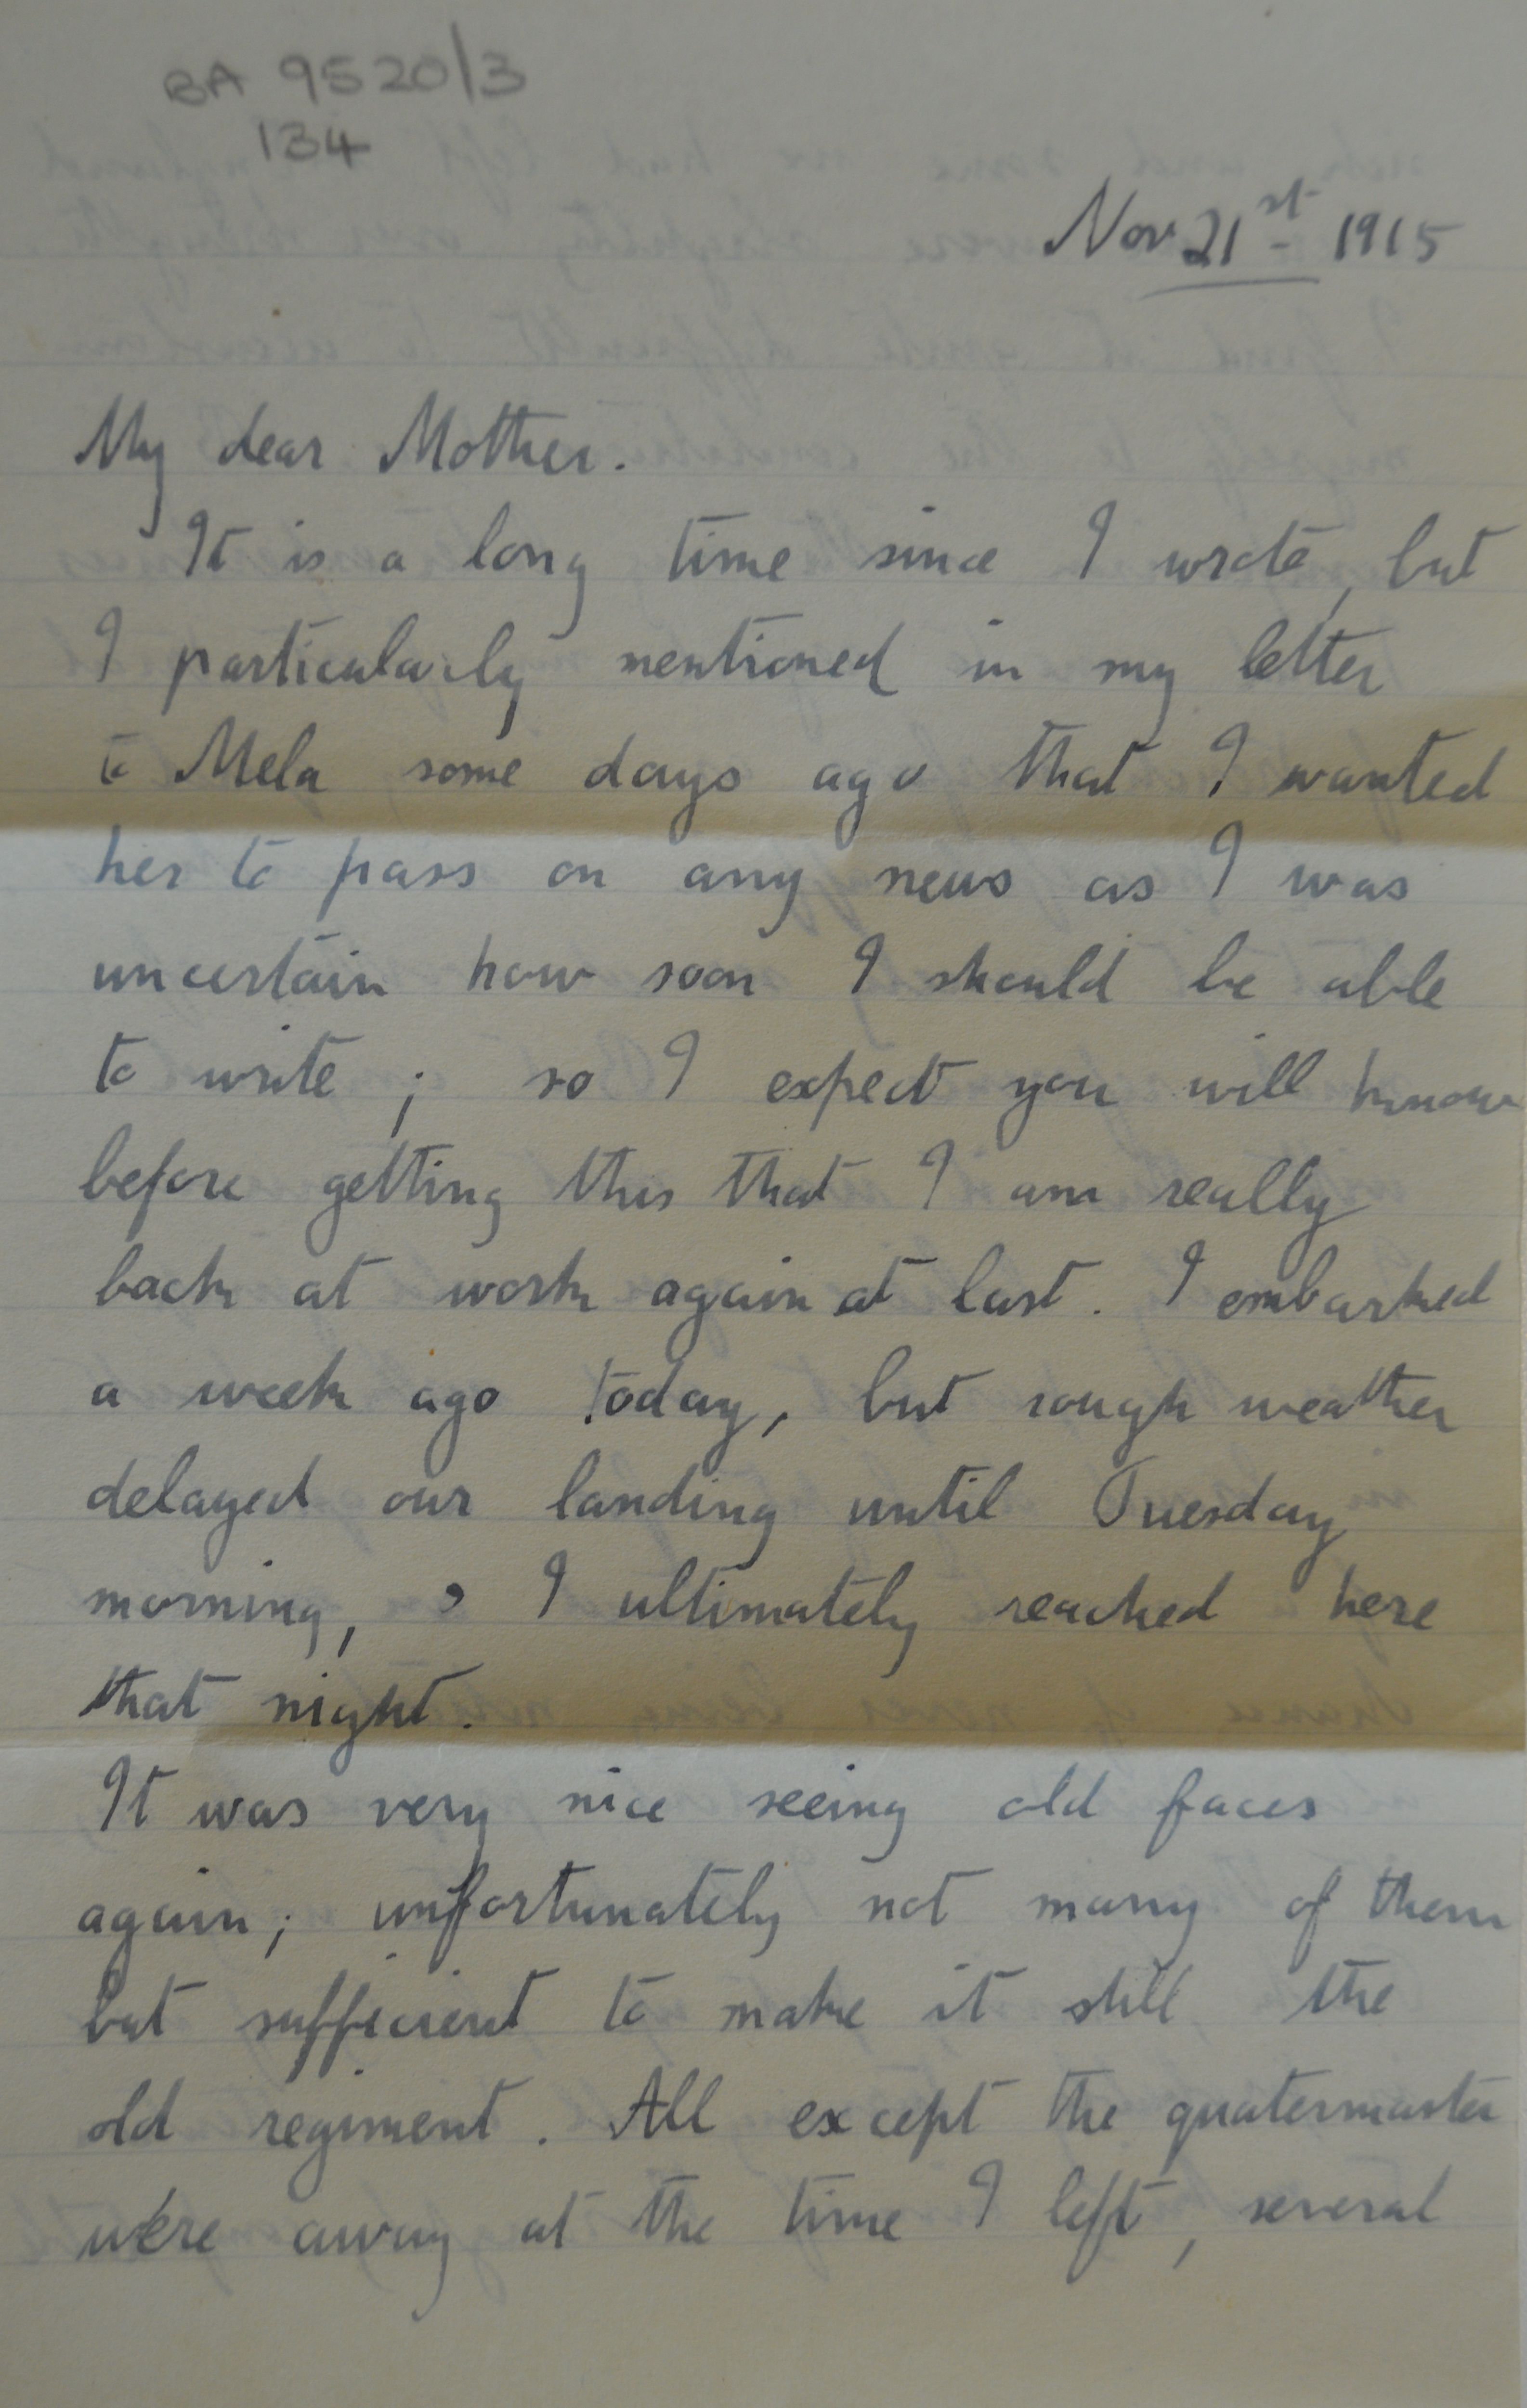 BA 9520/3
134
Nov 21st 1915
My dear Mother.
It is a long time since I wrote, but
I particularly mentioned in my letter
to Mela some days ago that I wanted
her to pass on any news as I was
uncertain how soon I should be able
to write ; so I expect you will know
before getting this that I am really
back at work again at last. I embarked
a week ago today, but rough weather
delayed our landing until Tuesday
morning, & I ultimately reached here
that night.
It was very nice seeing old faces
again; unfortunately not many of them
but sufficient to make it still the
old regiment. All except the quatermaster
were away at the time I left, several